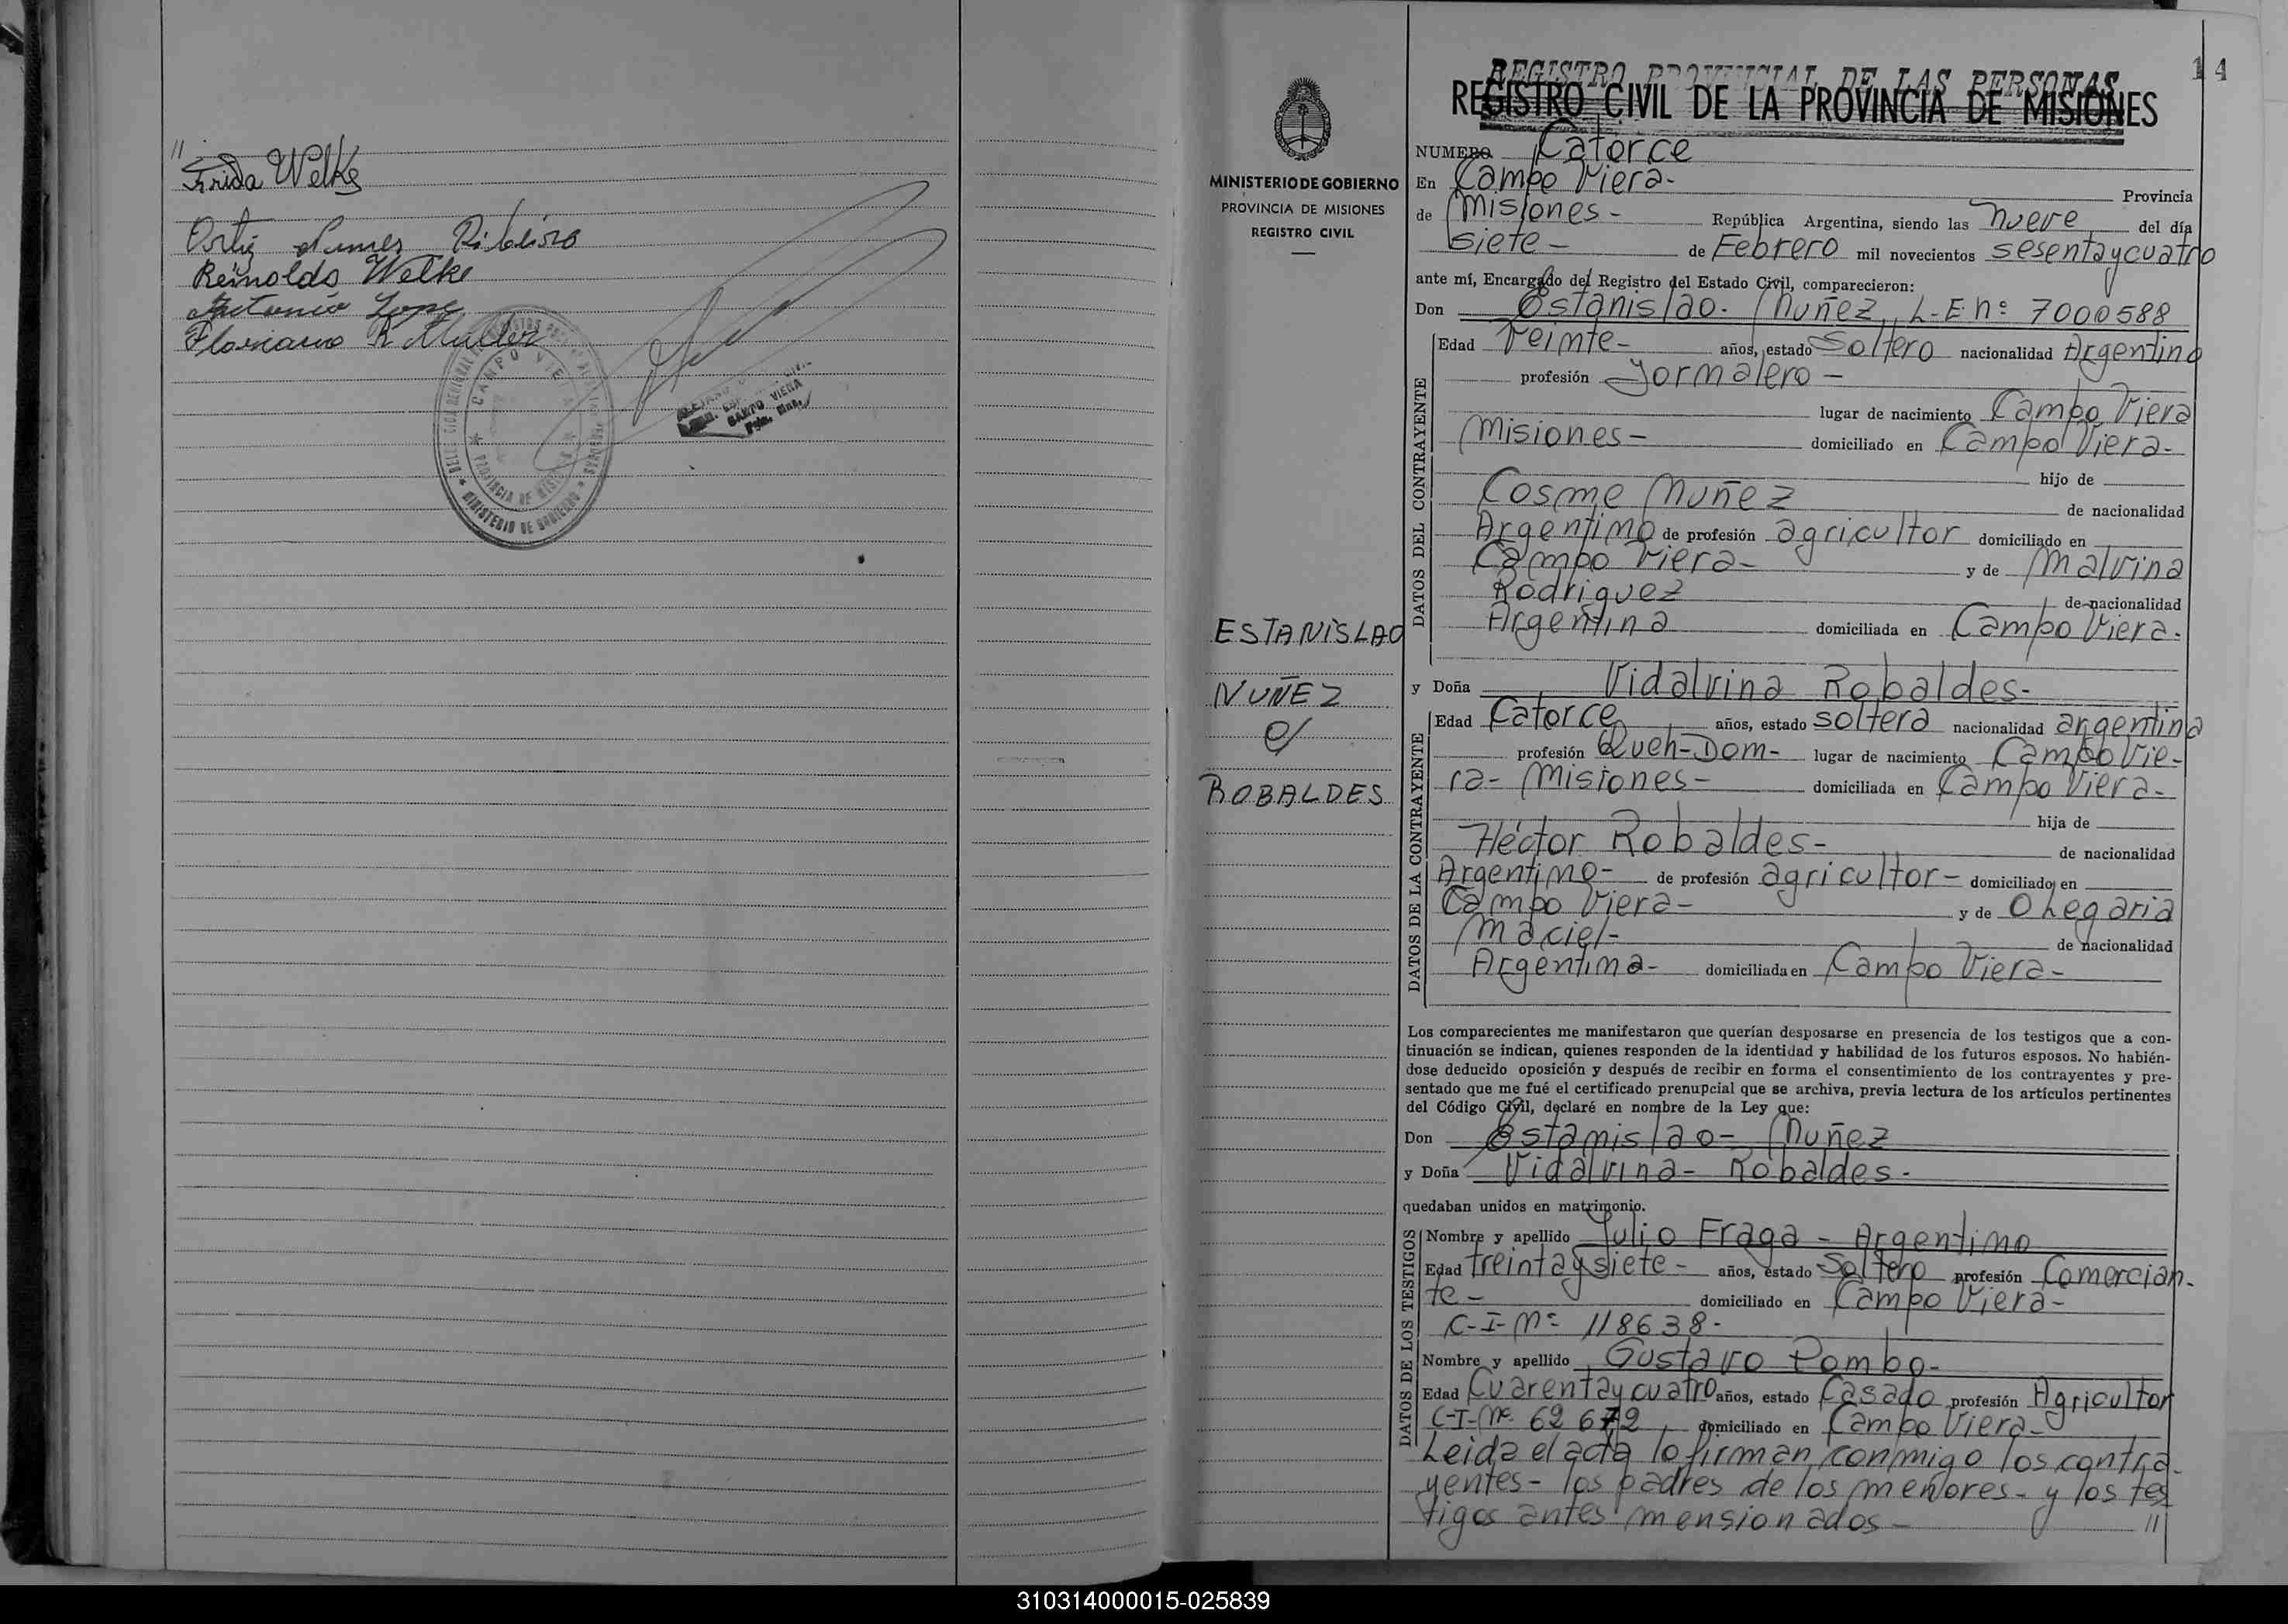 //
Frida Welke
Ortiz Nunes Ribeiro
Reinoldo Welke
Antonio Lopez
Floriano R
CAMPO VIERA
PROVINCIA DE MISIONES
MINISTERIO DE GOBIERNO
CAMPO VIERA
Pcia. Mns.
MINISTERIO DE GOBIERNO
PROVINCIA DE MISIONES
REGISTRO CIVIL
ESTANISLAO
NUÑEZ
c/
ROBALDES
14
REGISTRO PROVINCIAL DE LAS PERSONAS
REGISTRO CIVIL DE LA PROVINCIA DE MISIONES
NUMERO Catorce
En Campo Viera- Provincia
de Misiones- República Argentina, siendo las nueve del día
siete- de Febrero mil novecientos sesentaycuatro
ante mí, Encargado del Registro del Estado Civil, comparecieron:
Don Estanislao- Nuñez, L-E nº 7000588
DATOS DEL CONTRAYENTE
Edad Veinte- años, estado Soltero nacionalidad Argentino
profesión Jornalero-
lugar de nacimiento Campo Viera
Misiones- domiciliado en Campo Viera-
hijo de
Cosme Nuñez de nacionalidad
Argentino de profesión agricultor domiciliado en
Campo Viera- y de Malvina
Rodriguez de nacionalidad
Argentina domiciliada en Campo Viera-
y Doña Vidalvina Robaldes-
DATOS DE LA CONTRAYENTE
Edad Catorce años, estado soltera nacionalidad argentina
profesión Queh-Dom- lugar de nacimiento Campo Vie-
ra- Misiones- domiciliada en Campo Viera-
hija de
Héctor Robaldes- de nacionalidad
Argentino- de profesión agricultor- domiciliado en
Campo Viera- y de Olegaria
Maciel- de nacionalidad
Argentina- domiciliada en Campo Viera-
Los comparecientes me manifestaron que querían desposarse en presencia de los testigos que a con-
tinuación se indican, quienes responden de la identidad y habilidad de los futuros esposos. No habién-
dose deducido oposición y después de recibir en forma el consentimiento de los contrayentes y pre-
sentado que me fué el certificado prenupcial que se archiva, previa lectura de los artículos pertinentes
del Código Civil, declaré en nombre de la Ley que:
Don Estanislao- Nuñez
y Doña Vidalvina- Robaldes-
quedaban unidos en matrimonio.
DATOS DE LOS TESTIGOS
Nombre y apellido Julio Fraga- Argentino
Edad treintaysiete- años, estado Soltero profesión Comercian-
te- domiciliado en Campo Viera-
C-I-Nº 118638-
Nombre y apellido Gustavo Pombo-
Edad Cuarentaycuatro años, estado Casado profesión Agricultor
C-I-Nº 62672 domiciliado en Campo Viera-
Leida el acta lo firman conmigo los contra-
yentes- los padres de los menores- y los tes
tigos antes mensionados- //
310314000015-025839